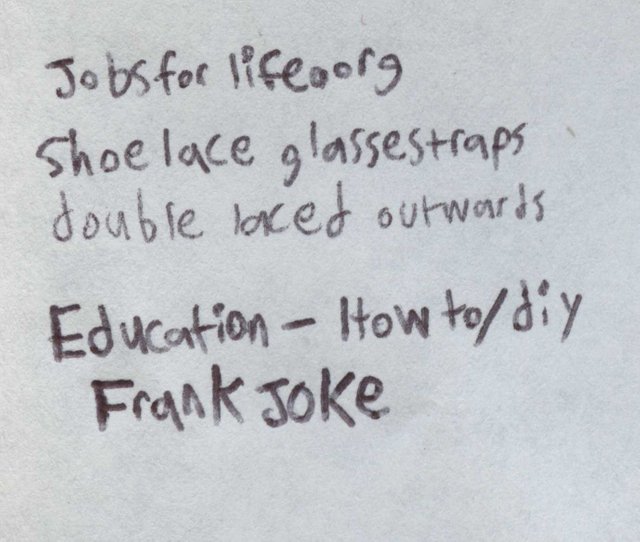 Jobsfor lifeoorg
Shoelace glassestraps
double laced outwards
Education - How to/diy
Frank JOKe